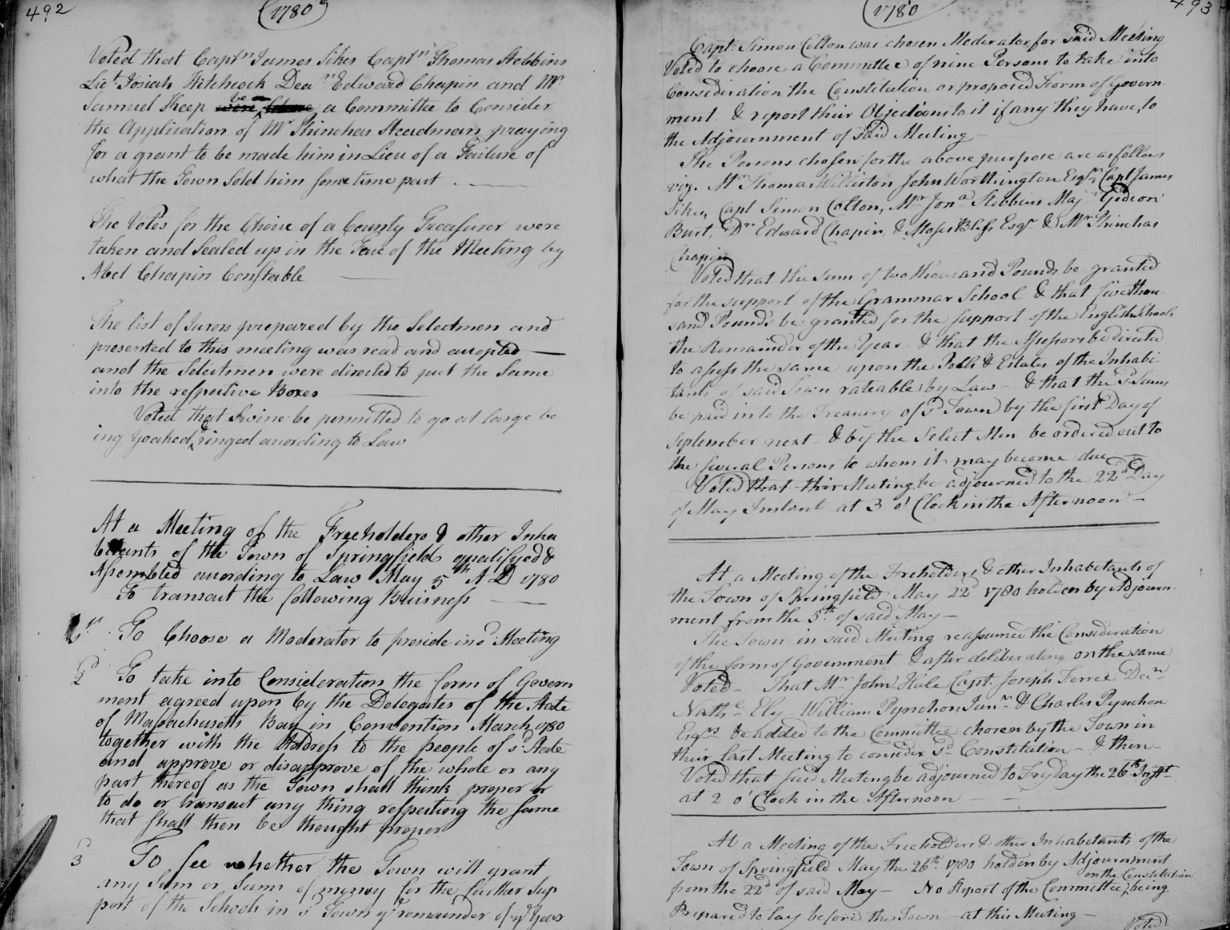 492
1780
Voted that Capt.n James Sikes Capt.n Thomas Stebbins
Lie.t Josiah Hitchcock Dea.n Edward Chapin and M.r
Samuel Keep be a Committee to Consider
the Application of M.r Phinehas Steadman praying
for a grant to be made him in Lieu of a Failure of
what the Town Sold him some time past
The Votes for the Choice of a County Treasurer were
taken and sealed up in the Face of the Meeting by
Abel Chapin Constable
The list of Jurors prepared by the Selectmen and
presented to this meeting was read and accepted
and the Selectmen were directed to put the Same
into the respective Boxes
Voted that Swine be permitted to go at large be
ing Yoaked & ringed according to Law
At a Meeting of the Freeholders & other Inha
bitants of the Town of Springfield qualifyed &
Assembled according to Law May 5th A D 1780
To transact the following Buisness
1st To Choose a Moderator to preside in sd Meeting
2 To take into Consideration the form of Govern
ment agreed upon by the Delegates of the State
of Massachusetts Bay in Convention March 1780
together with the Address to the people of sd State
and approve or disapprove of the whole or any
part thereof as the Town shall think proper or
to do or transact any thing respecting the same
that shall then be thought proper
3 To see whether the Town will grant
any Sum or Sums of money for the further Sup
port of the Schools in sd Town ye remainder of ye Year
1780
493
Capt. Simon Colton was chosen Moderator for said Meeting
Voted to choose a Committee of nine Persons to take into
Consideration the Constitution or proposed Form of Govern-
ment & report their Objections to it if any they have, to
the Adjournment of said Meeting
The Persons chosen for the above purpose are as follows
viz. Mr Thomas Williston John Worthington Esqr, Capt James
Sikes, Capt Simon Colton, Mr Jona Stebbins Maj Gideon
Burt, Dn Edward Chapin, & Moses Bliss Esqr & Mr Phinehas
Chapin
Voted that the Sum of two thousand Pounds be granted
for the support of the Grammar School & that five thou-
sand Pounds be granted for the support of the English Schools
the Remainder of the Year & that the Assessors be directed
to assess the same upon the Polls & Estates of the Inhabi-
tants of said Town rateable by Law & that the sd Sums
be paid into the Treasury of sd Town by the first Day of
September next & by the Select Men be ordered out to
the several Persons to whom it may become due
Voted that this Meeting be adjourned to the 22d Day
of May Instant at 3 o'Clock in the Afternoon
At a Meeting of the Freeholders & other Inhabitants of
the Town of Springfield May 22d 1780 holden by Adjourn-
ment from the 5th of said May
The Town in said Meeting reassumed the Consideration
of the form of Government & after deliberating on the same
Voted That Mr John Hale Capt. Joseph Ferre Decn
Nathl Ely William Pynchon Junr & Charles Pynchon
Esqrs be added to the Committee chosen by the Town in
their Last Meeting to consider sd Constitution & then
Voted that said Meeting be adjourned to Fryday the 26th Instt
at 2 o'Clock in the Afternoon
At a Meeting of the Freeholders & other Inhabitants of the
Town of Springfield May the 26th 1780 holden by Adjournment
from the 22d of said May No Report of the Committee on the Constitution being
Prepared to lay before the Town at this Meeting
Voted